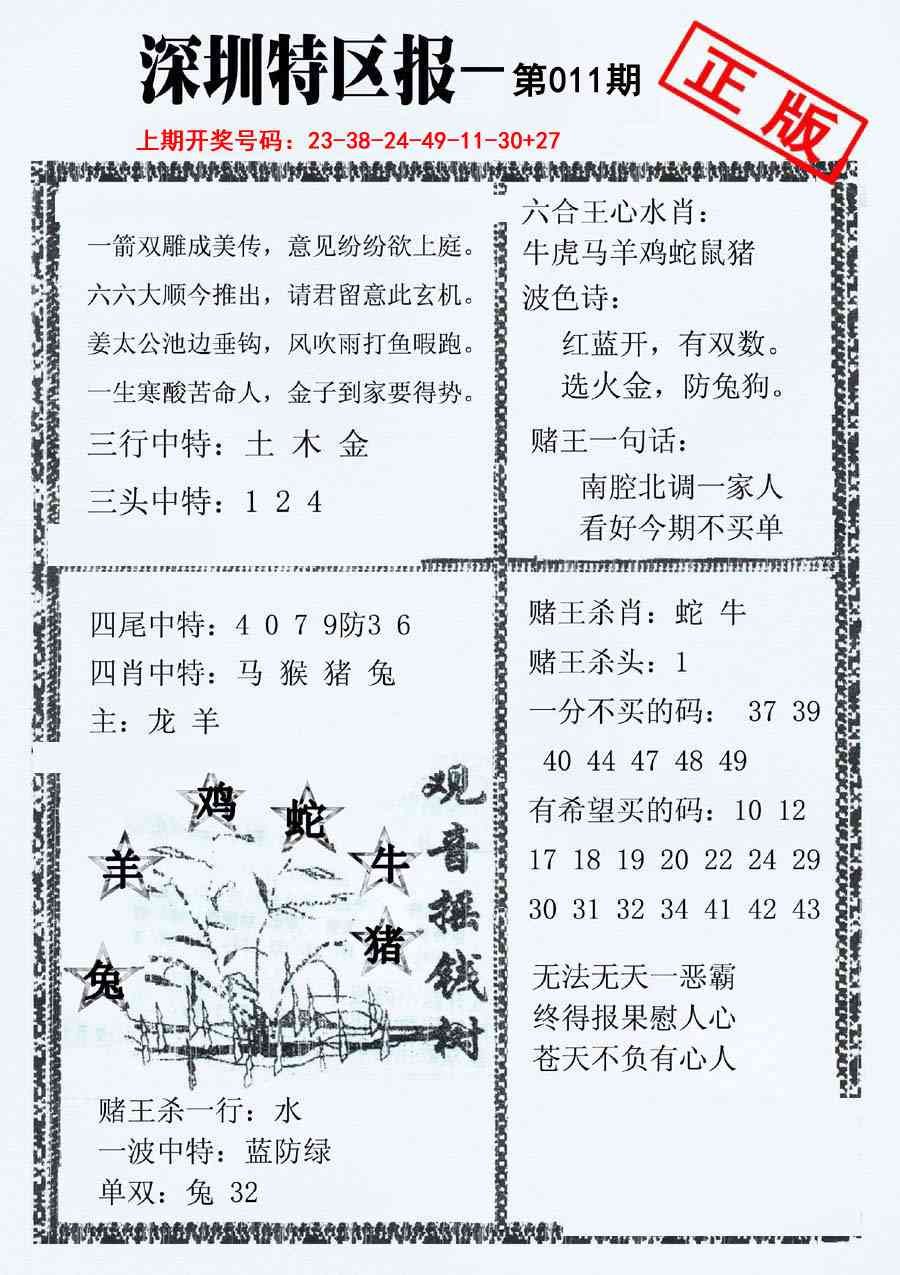 深圳特区报—第011期
正版
上期开奖号码：23-38-24-49-11-30+27
一箭双雕成美传，意见纷纷欲上庭。
六六大顺今推出，请君留意此玄机。
姜太公池边垂钩，风吹雨打鱼暇跑。
一生寒酸苦命人，金子到家要得势。
三行中特：土 木 金
三头中特：1 2 4
六合王心水肖：
牛虎马羊鸡蛇鼠猪
波色诗：
红蓝开，有双数。
选火金，防兔狗。
赌王一句话：
南腔北调一家人
看好今期不买单
四尾中特：4 0 7 9防3 6
四肖中特：马 猴 猪 兔
主：龙 羊
鸡
蛇
羊
牛
猪
兔
观音摇钱树
赌王杀一行：水
一波中特：蓝防绿
单双：兔 32
赌王杀肖：蛇 牛
赌王杀头：1
一分不买的码： 37 39
40 44 47 48 49
有希望买的码：10 12
17 18 19 20 22 24 29
30 31 32 34 41 42 43
无法无天一恶霸
终得报果慰人心
苍天不负有心人